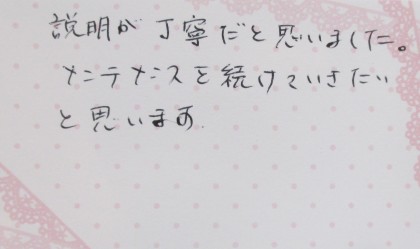 説明が丁寧だと思いました。
メンテナンスを続けていきたい
と思います